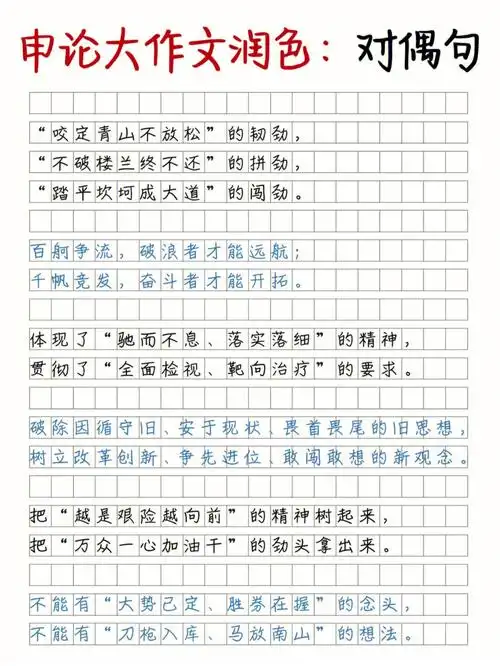 申论大作文润色：对偶句
“咬定青山不放松”的韧劲，
“不破楼兰终不还”的拼劲，
“踏平坎坷成大道”的闯劲。
百舸争流，破浪者才能远航；
千帆竞发，奋斗者才能开拓。
体现了“驰而不息、落实落细”的精神，
贯彻了“全面检视、靶向治疗”的要求。
破除因循守旧、安于现状、畏首畏尾的旧思想，
树立改革创新、争先进位、敢闯敢想的新观念。
把“越是艰险越向前”的精神树起来，
把“万众一心加油干”的劲头拿出来。
不能有“大势已定、胜券在握”的念头，
不能有“刀枪入库、马放南山”的想法。